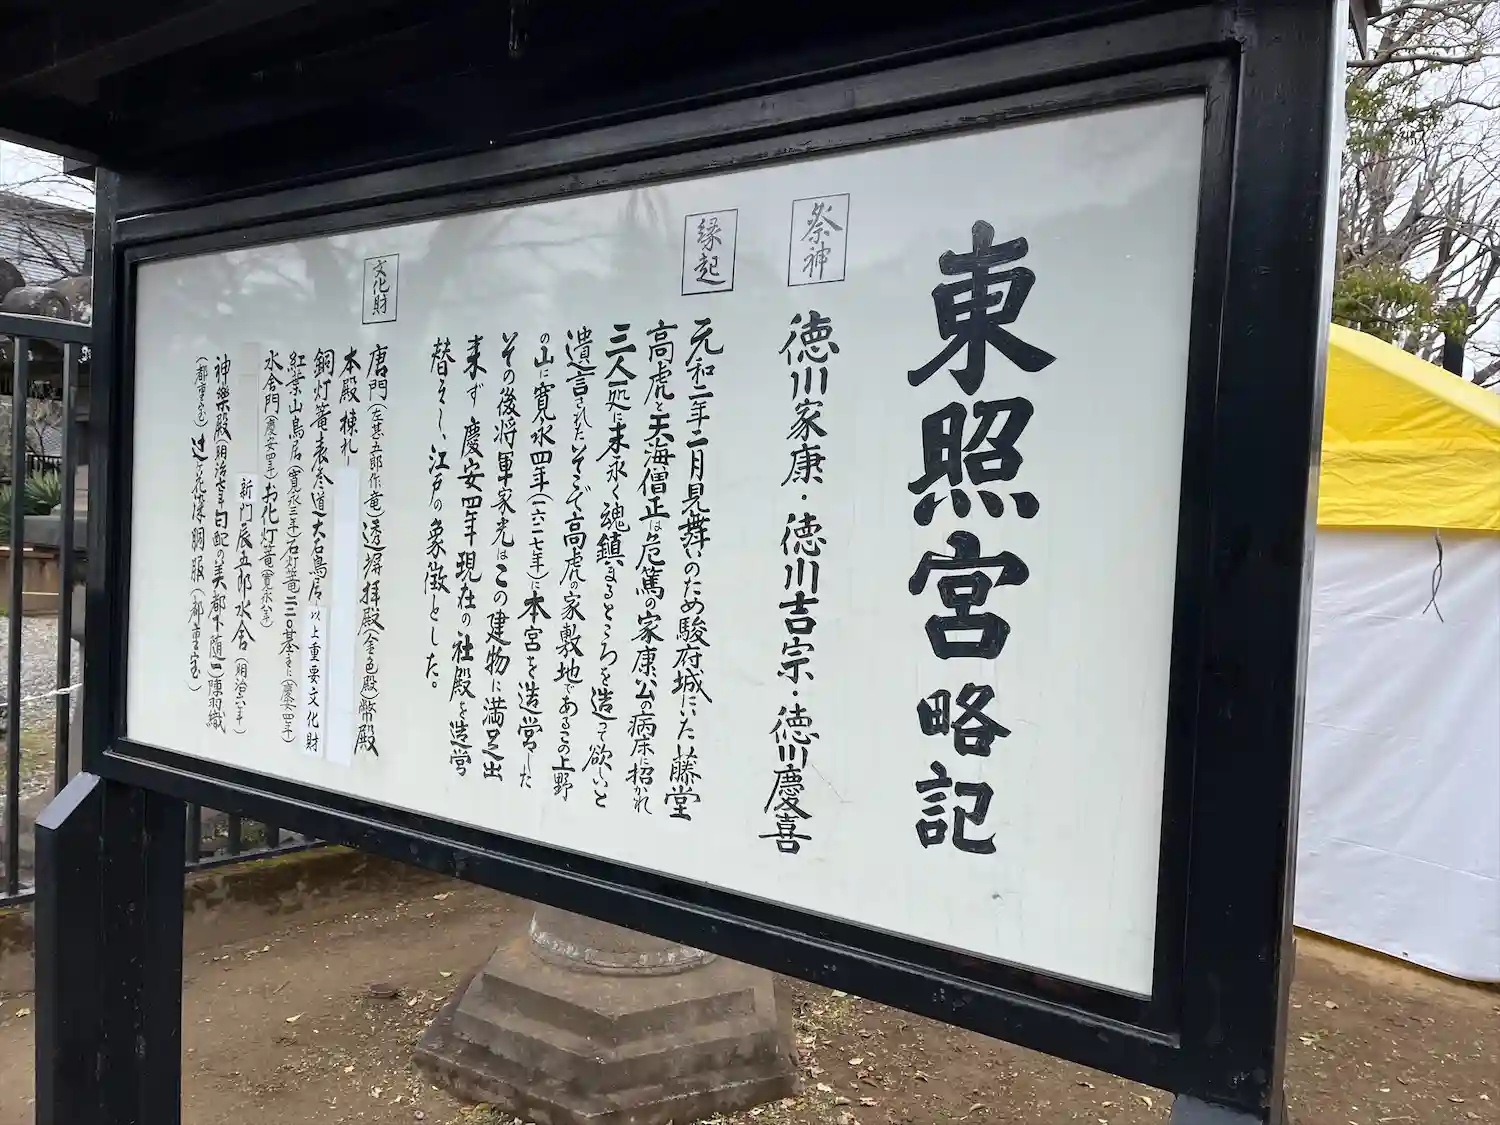 東照宮略記
祭神
徳川家康・徳川吉宗・徳川慶喜
縁起
元和二年二月見舞いのため駿府城にいた藤堂
高虎と天海僧正は危篤の家康公の病床に招かれ
三人一処に末永く魂鎮まるところを造って欲しいと
遺言されたいそこで高虎の家敷地であるこの上野
の山に寛永四年(一六二七年)に本宮を造営した
その後将軍家光はこの建物に満足出
来ず慶安四年現在の社殿を造営
替えし、江戸の象徴とした。
文化財
唐門(左甚五郎作竜)透塀拝殿(金色殿)幣殿
本殿棟札
銅灯篭表参道大石鳥居以上重要文化財
紅葉山鳥居(寛永三年)石灯篭二二〇基(慶安四年)
水舎門(慶安四年)お化灯篭(寛永八年)
新門辰五郎水舎(明治六年)
神樂殿(明治七年)白配の美都下随一陳羽織
(都重宝)辻ヶ花染胴服(都重宝)